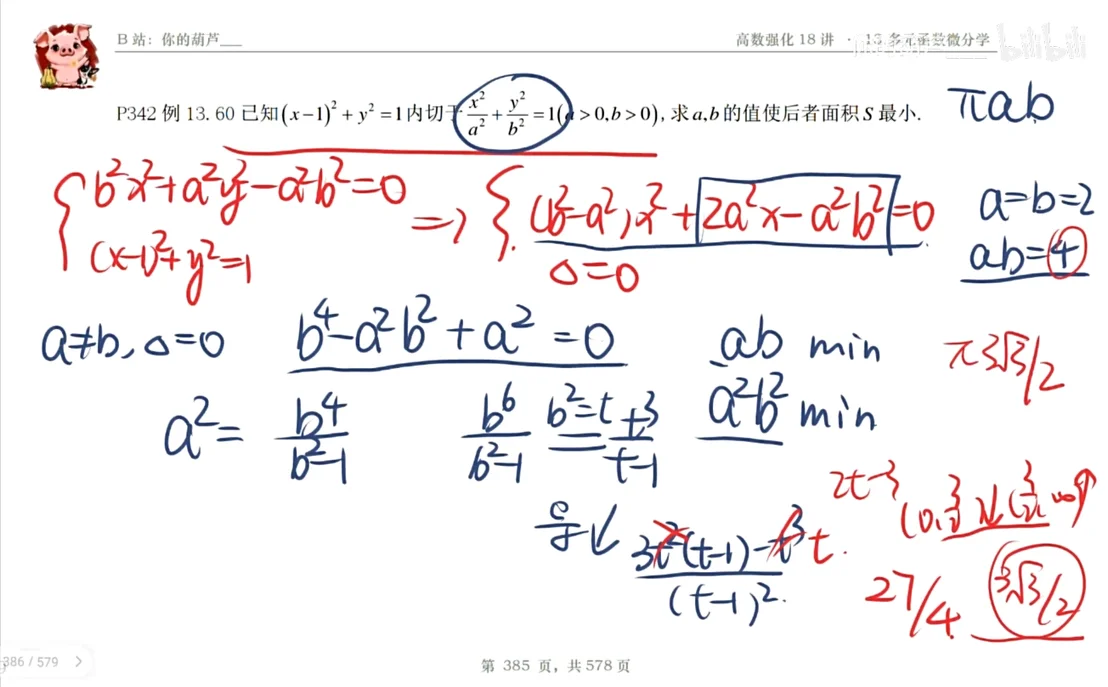 B 站：你的葫芦___
高数强化 18 讲 · 13 多元函数微分学
bilibili
P342 例 13. 60 已知(x−1)²+y²=1内切于x²/a²+y²/b²=1(a>0,b>0),求a,b的值使后者面积S最小.
πab
{b²x²+a²y²−a²b²=0
(x−1)²+y²=1
=> {(b²−a²)x²+2a²x−a²b²=0
Δ=0
a=b=2
ab=4
a≠b, Δ=0
b⁴−a²b²+a²=0
ab min
π3√3/2
a²b² min
a²= b⁴/b²−1
b⁶/b²−1 b²=t t³/t−1
导 3t²(t−1)−t³ t/(t−1)²
2t−3
27/4
3√3/2
386 / 579 >
第 385 页，共 578 页